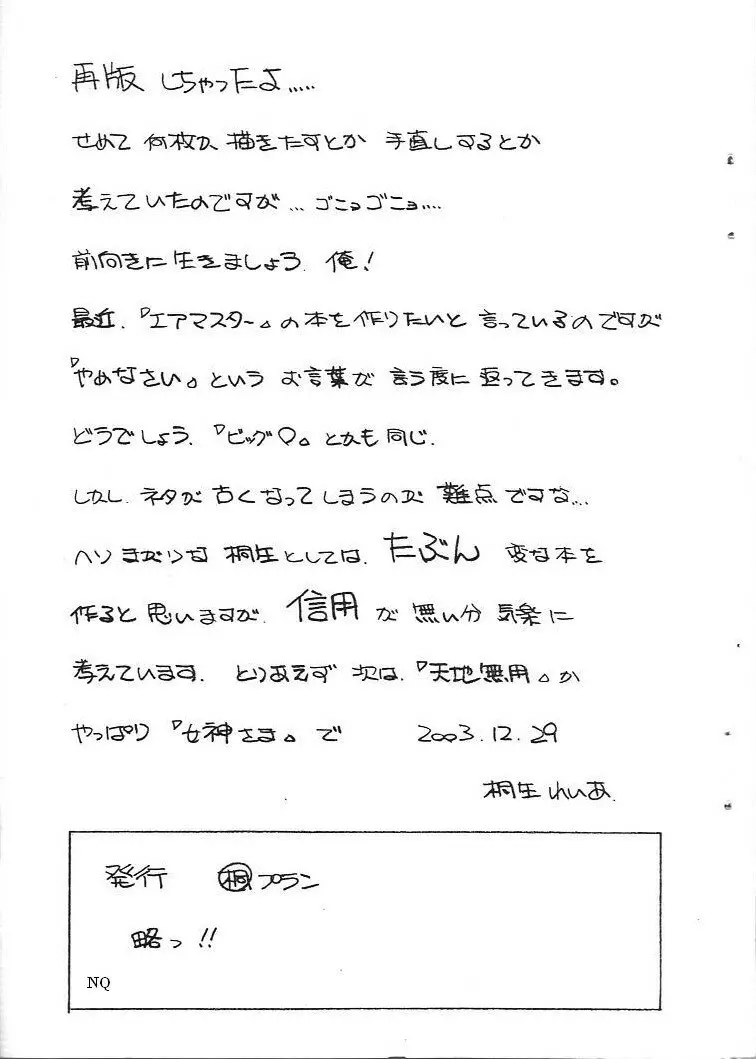 再版 しちゃったよ.....
せめて 何枚か 描きたすとか 手直しするとか
考えていたのですが... ゴニョゴニョ....
前向きに生きましょう. 俺!
最近.『エアマスター』の本を作りたいと 言っているのですが
『やめなさい』という お言葉が 言う度に 返ってきます。
どうでしょう.『ビッグO』とかも同じ.
しかし. ネタが 古くなってしまうのが 難点ですな...
ヘソまがりな 桐生としては. たぶん 変な本を
作ると思いますが. 信用が 無い分 気楽に
考えています. とりあえず 次は.『天地無用』か
やっぱり『女神さま』で 2003.12.29
桐生れいあ.
発行 桐プラン
略っ!!
NQ